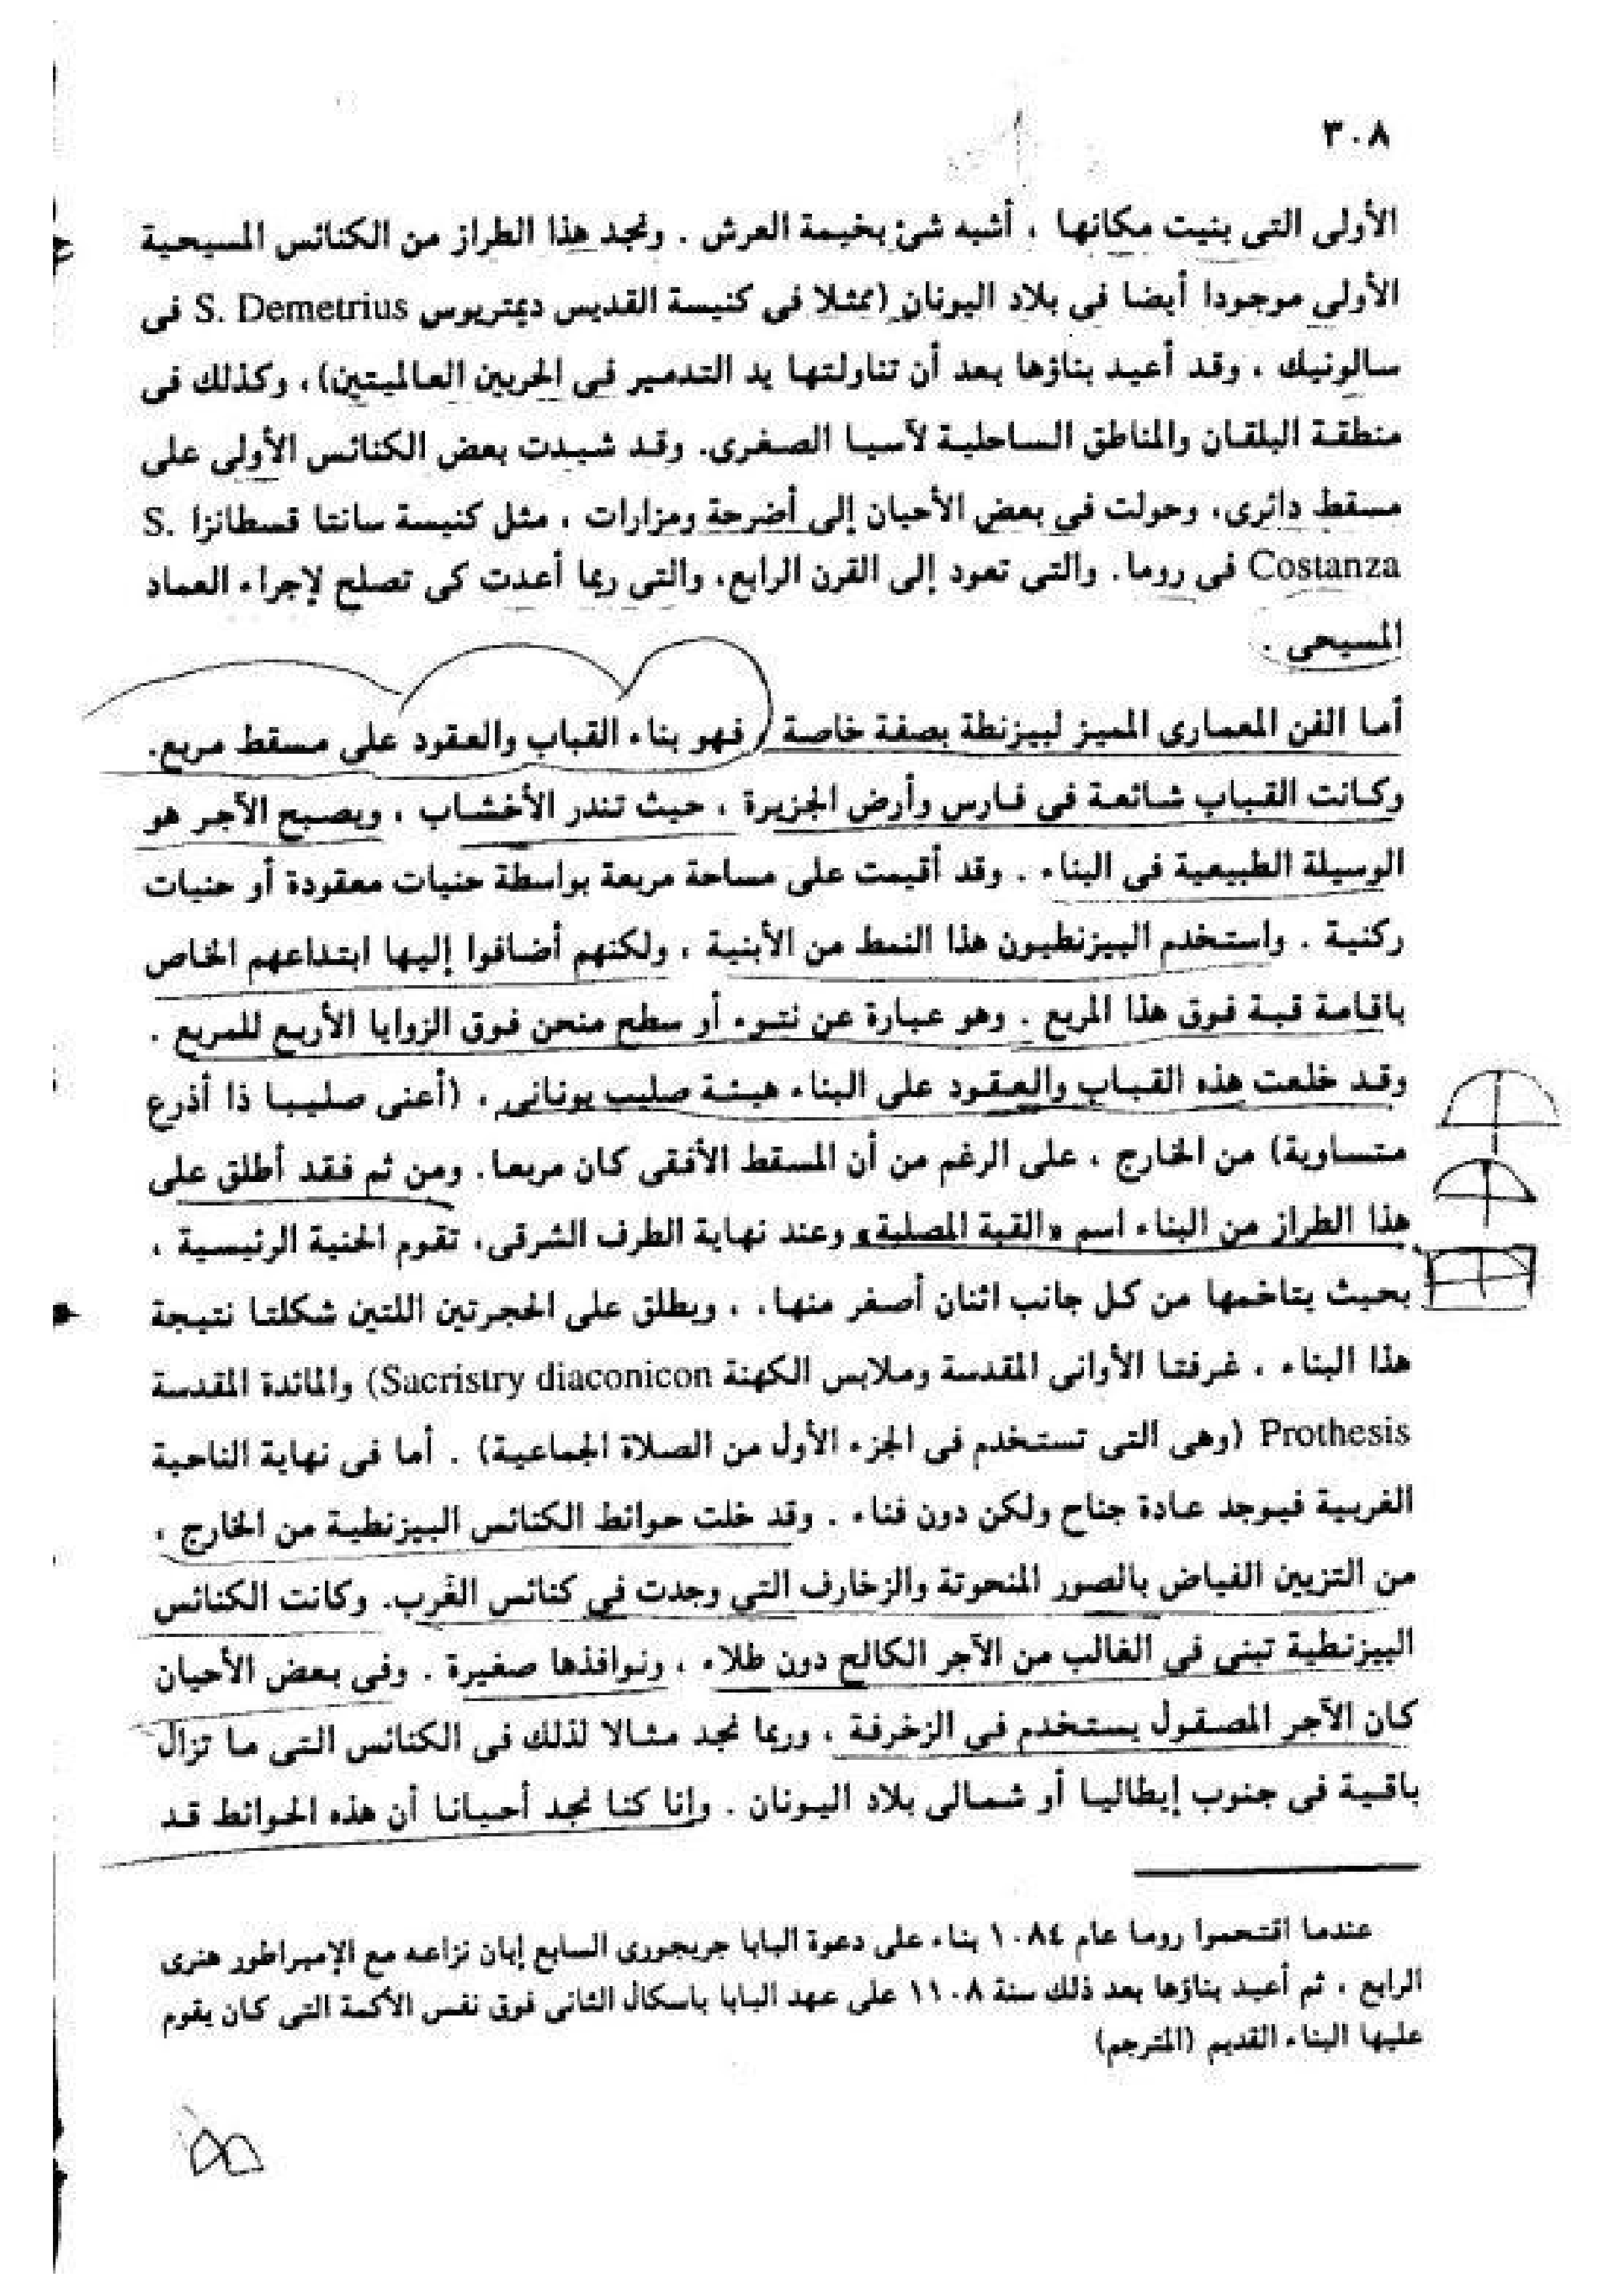 ٣٠٨
الأولى التى بنيت مكانها ، أشبه شئ بخيمة العرش . ونجد هذا الطراز من الكنائس المسيحية
الأولى موجودا أيضا فى بلاد اليونان (ممثلا فى كنيسة القديس ديمتريوس S. Demetrius فى
سالونيك ، وقد أعيد بناؤها بعد أن تناولتها يد التدمير فى الحربين العالميتين) ، وكذلك فى
منطقة البلقان والمناطق الساحلية لآسيا الصغرى. وقد شيدت بعض الكنائس الأولى على
مسقط دائرى، وحولت فى بعض الأحيان إلى أضرحة ومزارات ، مثل كنيسة سانتا قسطانزا S.
Costanza فى روما. والتى تعود إلى القرن الرابع، والتى ربما أعدت كى تصلح لإجراء العماد
المسيحى .
أما الفن المعمارى المميز لبيزنطة بصفة خاصة ، فهو بناء القباب والعقود على مسقط مربع.
وكانت القباب شائعة فى فارس وأرض الجزيرة ، حيث تندر الأخشاب ، ويصبح الآجر هو
الوسيلة الطبيعية فى البناء . وقد أقيمت على مساحة مربعة بواسطة حنيات معقودة أو حنيات
ركنية . واستخدم البيزنطيون هذا النمط من الأبنية ، ولكنهم أضافوا إليها ابتداعهم الخاص
باقامة قبة فوق هذا المربع . وهو عبارة عن نتوء أو سطح منحن فوق الزوايا الأربع للمربع .
وقد خلعت هذه القباب والعقود على البناء هيئة صليب يونانى ، (أعنى صليبا ذا أذرع
متساوية) من الخارج ، على الرغم من أن المسقط الأفقى كان مربعا. ومن ثم فقد أطلق على
هذا الطراز من البناء اسم «القبة المصلبة» وعند نهاية الطرف الشرقى، تقوم الحنية الرئيسية ،
بحيث يتاخمها من كل جانب اثنان أصغر منها. ، ويطلق على الحجرتين اللتين شكلتا نتيجة
هذا البناء ، غرفتا الأوانى المقدسة وملابس الكهنة Sacristry diaconicon) والمائدة المقدسة
Prothesis (وهى التى تستخدم فى الجزء الأول من الصلاة الجماعية) . أما فى نهاية الناحية
الغربية فيوجد عادة جناح ولكن دون فناء . وقد خلت حوائط الكنائس البيزنطية من الخارج ،
من التزيين الفياض بالصور المنحوتة والزخارف التى وجدت فى كنائس الغرب. وكانت الكنائس
البيزنطية تبنى فى الغالب من الآجر الكالح دون طلاء ، ونوافذها صغيرة . وفى بعض الأحيان
كان الآجر المصقول يستخدم فى الزخرفة ، وربما نجد مثالا لذلك فى الكنائس التى ما تزال
باقية فى جنوب إيطاليا أو شمالى بلاد اليونان . وانا كنا نجد أحيانا أن هذه الحوائط قد
عندما اقتحموا روما عام ١٠٨٤ بناء على دعوة البابا جريجورى السابع إبان نزاعه مع الإمبراطور هنرى
الرابع ، ثم أعيد بناؤها بعد ذلك سنة ١١٠٨ على عهد البابا باسكال الثانى فوق نفس الأكمة التى كان يقوم
عليها البناء القديم (المترجم)